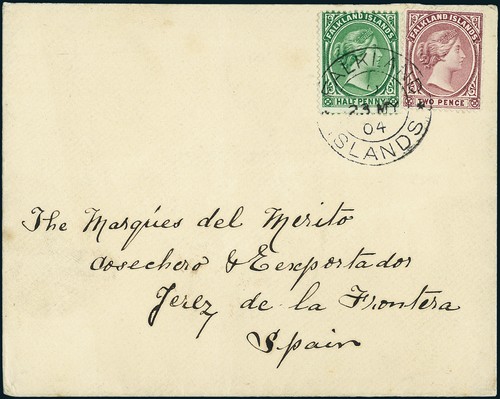 FALKLAND ISLANDS
HALFPENNY
FALKLAND ISLANDS
TWO PENCE
FALKLAND
23 MY
04
ISLANDS
The Marqúes del Merito
Cosechero & Eexportador
Jerez de la Frontera
Spain